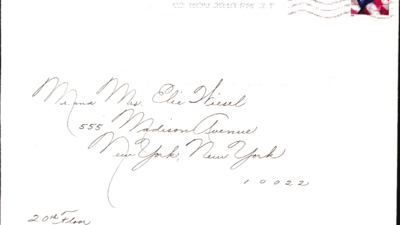 02 NOV 2010 PM 2 T
Mr. and Mrs. Elie Wiesel
555 Madison Avenue
New York, New York
10022
20th Floor